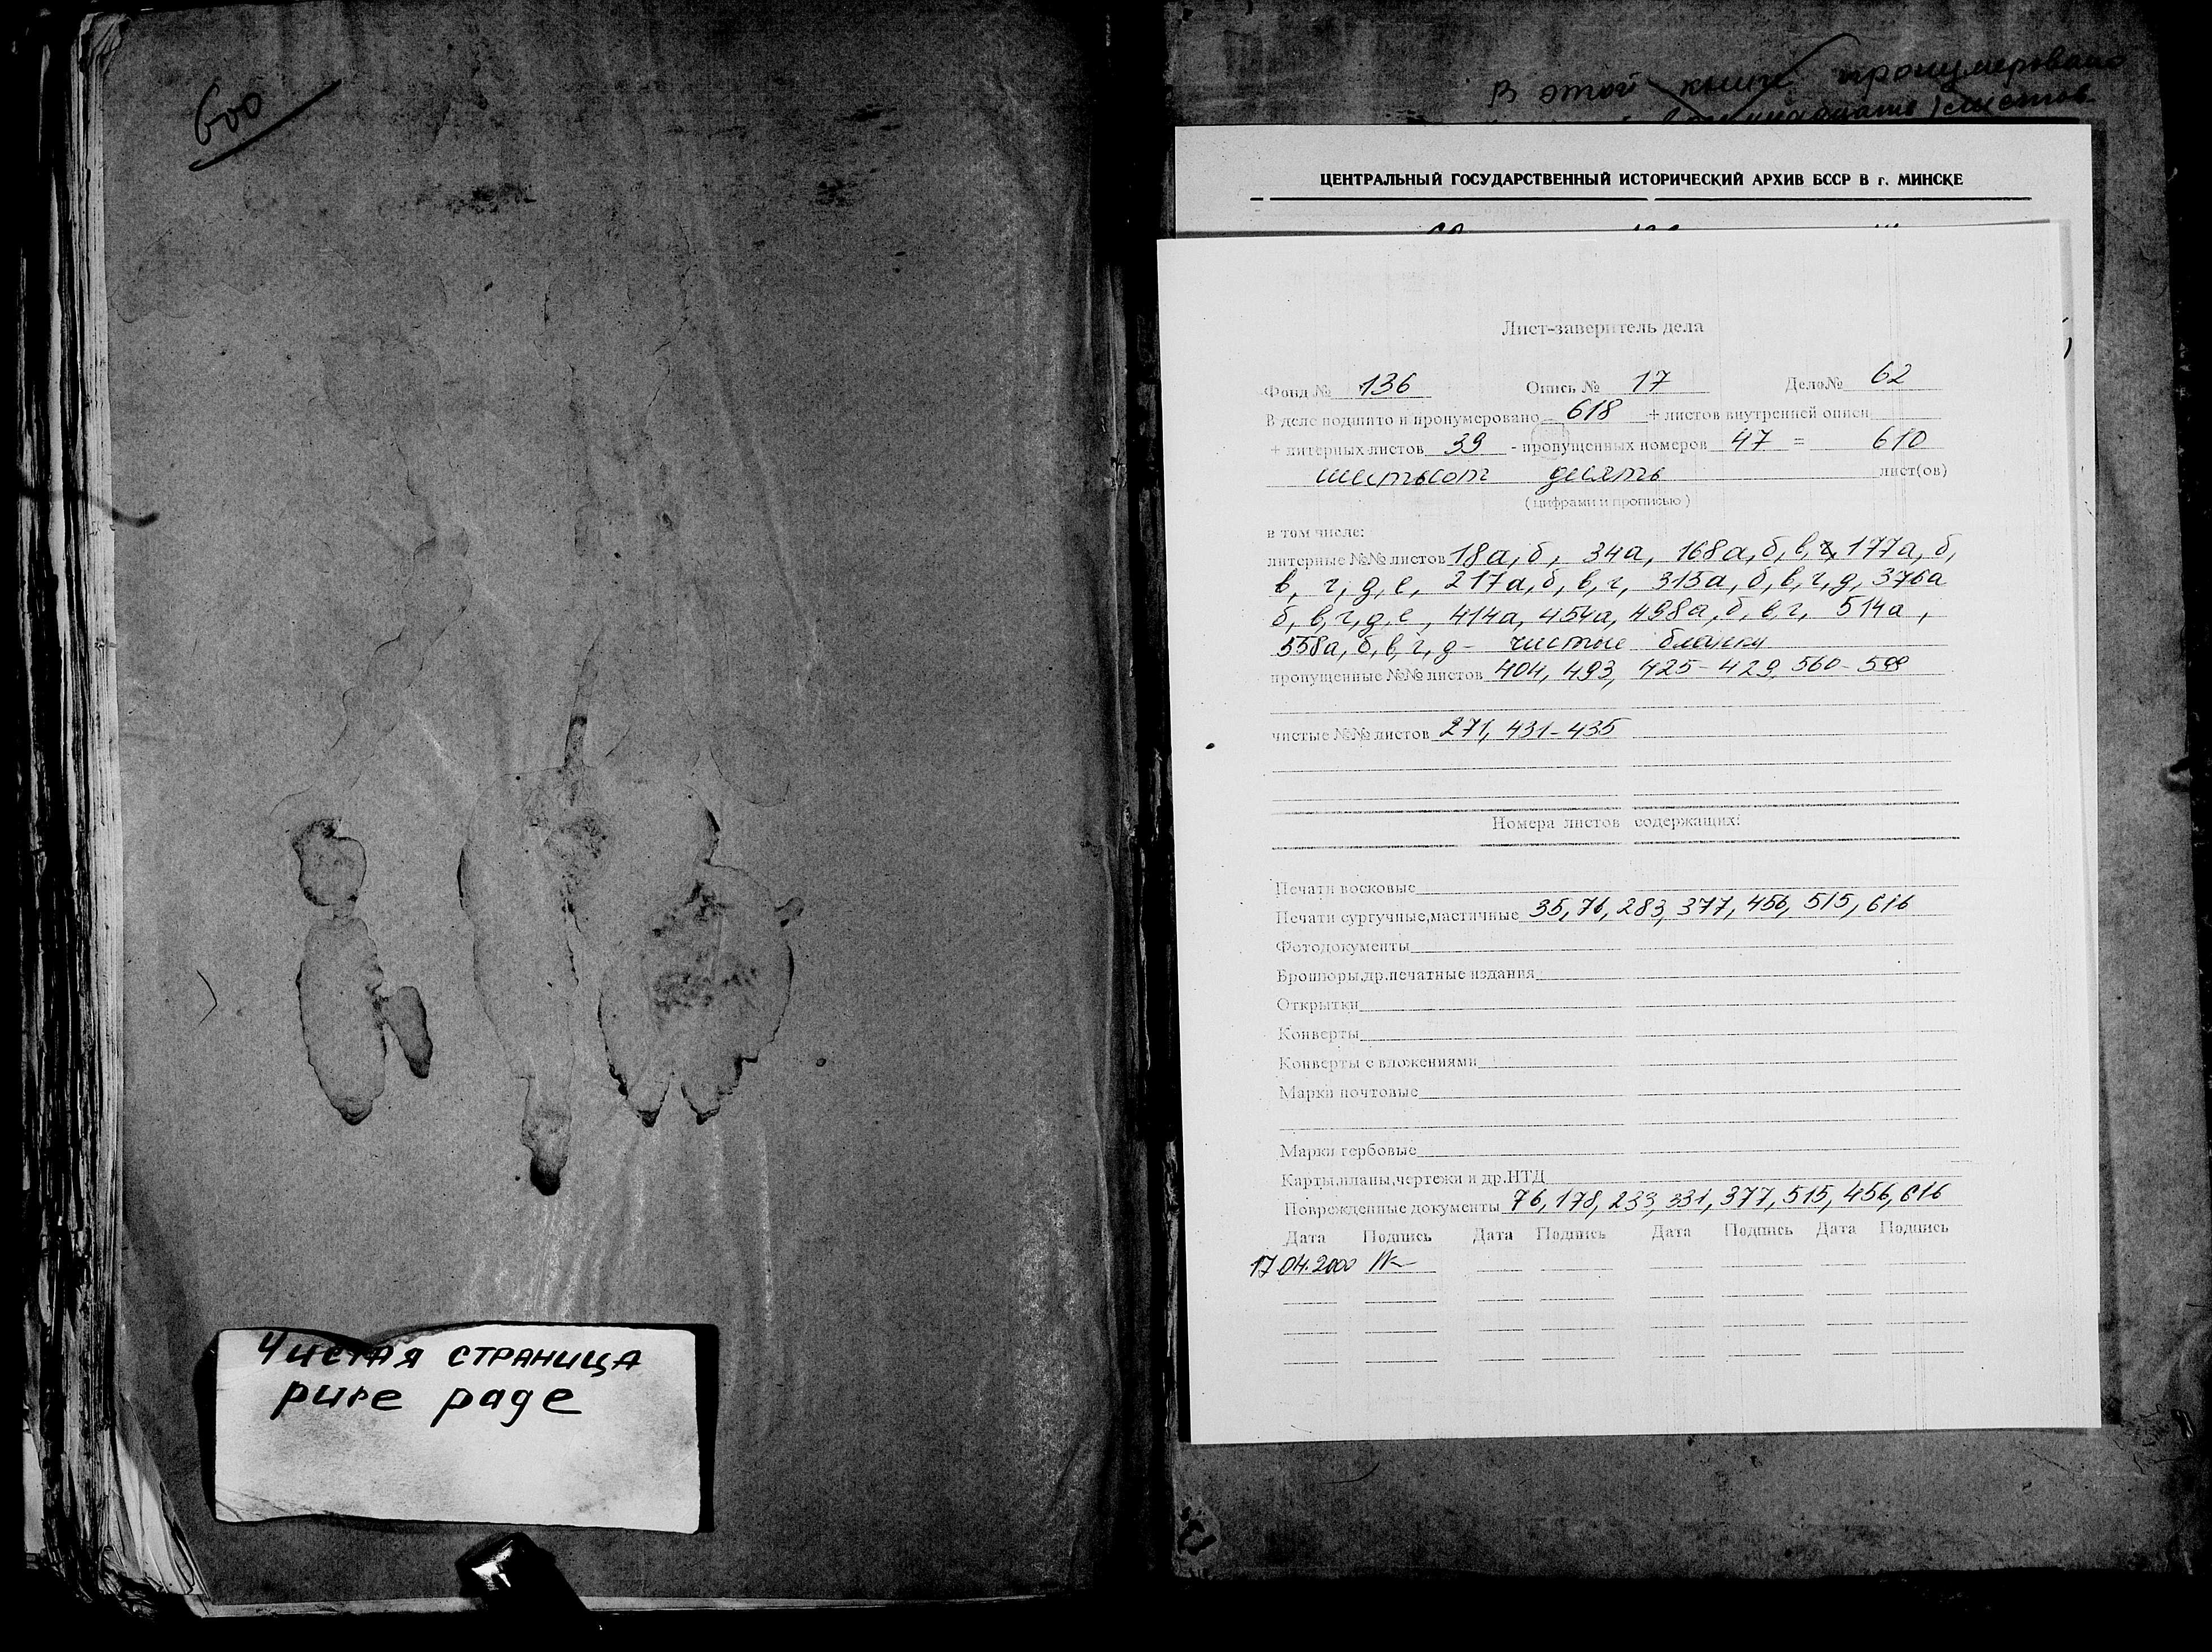 600
Чистая страница
pure page
В этой книге пронумеровано
листов
ЦЕНТРАЛЬНЫЙ ГОСУДАРСТВЕННЫЙ ИСТОРИЧЕСКИЙ АРХИВ БССР В г. МИНСКЕ
Лист-заверитель дела
Фонд № 136 Опись № 17 Дело№ 62
В деле подшито и пронумеровано 618 + листов внутренней описи
+ литерных листов 39 - пропущенных номеров 47 = 610
шестьсот десять лист(ов)
(цифрами и прописью)
в том числе:
литерные №№ листов 18а, б, 34а, 168а, б, в, 177а, б,
в, г, д, е, 217а, б, в, г, 315а, б, в, г, д, 376а
б, в, г, д, е, 414а, 454а, 498а, б, в, г, 514а,
558а, б, в, г, д - чистые бланки
пропущенные №№ листов 404, 493, 425-429, 560-598
чистые №№ листов 271, 431-435
Номера листов содержащих:
Печати восковые
Печати сургучные,мастичные 35, 76, 283, 377, 456, 515, 616
Фотодокументы
Брошюры,др.печатные издания
Открытки
Конверты
Конверты с вложениями
Марки почтовые
Марки гербовые
Карты,планы,чертежи и др.НТД
Поврежденные документы 76, 178, 233, 331, 377, 515, 456, 616
Дата Подпись Дата Подпись Дата Подпись Дата Подпись
17.04.2000